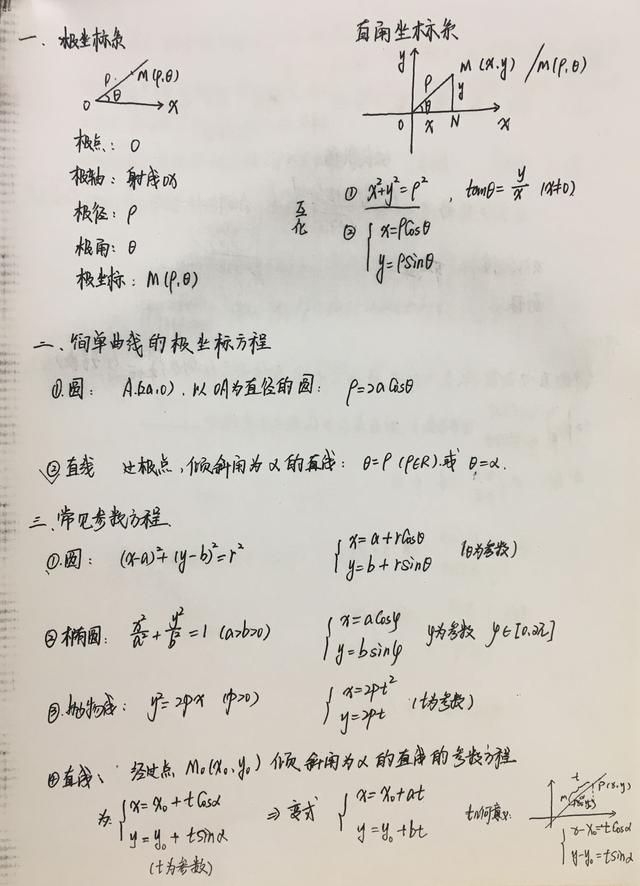 一、极坐标系
直角坐标系
P. M(ρ,θ)
θ
O x
y
M (x,y) / M(ρ,θ)
ρ y
θ
O x N x
极点: O
极轴: 射线OX
极径: ρ
极角: θ
极坐标: M(ρ,θ)
互化
① x²+y²=ρ² , tanθ= y/x (x≠0)
② { x=ρcosθ
y=ρsinθ
二、简单曲线的极坐标方程
①.圆: A(2a,0), 以OA为直径的圆: ρ=2acosθ
②直线 过极点,倾斜角为α的直线: θ=ρ (ρ∈R).或 θ=α.
三、常见参数方程
①.圆: (x-a)²+(y-b)²=r² { x=a+rcosθ
y=b+rsinθ (θ为参数)
②椭圆: x²/a² + y²/b² =1 (a>b>0) { x=acosφ
y=bsinφ φ为参数 φ∈[0,2π]
③.抛物线: y²=2px (p>0) { x=2pt²
y=2pt (t为参数)
④直线、 经过点 M₀(x₀,y₀) 倾斜角为α的直线的参数方程
为: { x=x₀+tcosα
y=y₀+tsinα
(t为参数)
⇒ 变式 { x=x₀+at
y=y₀+bt
t几何意义:
t P(x,y)
{ x-x₀=tcosα
y-y₀=tsinα